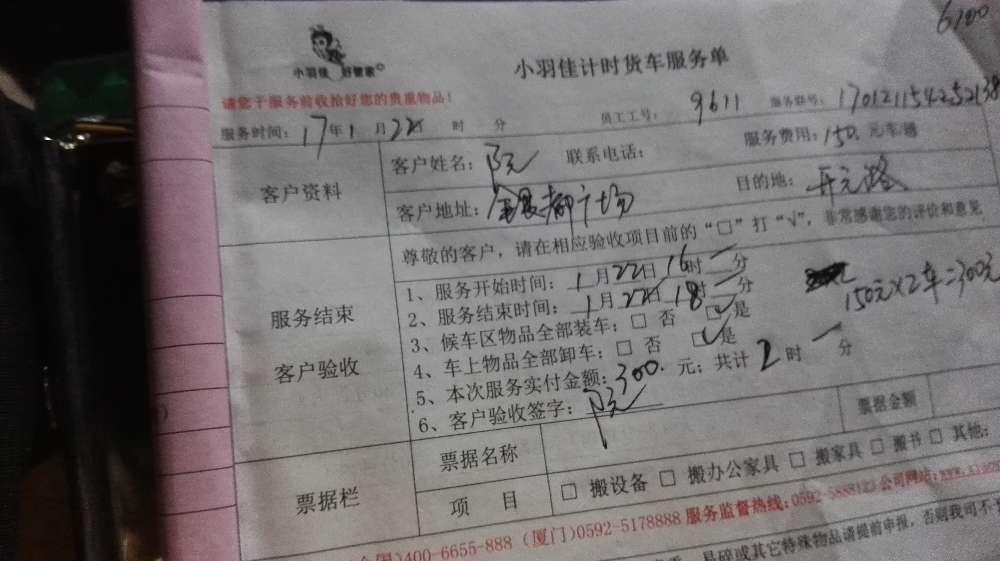 6100
小羽佳 好管家
小羽佳计时货车服务单
请您于服务前收拾好您的贵重物品！
服务时间：17年1月22日 时 分 员工工号：9611 服务群号：
客户资料
客户姓名：阮 联系电话： 服务费用：150. 元/车/趟
客户地址：金银都广场 目的地：开元路
服务结束
客户验收
尊敬的客户，请在相应验收项目前的“□”打“√”，非常感谢您的评价和意见
1、服务开始时间：1月22日16时 分
2、服务结束时间：1月22日18时 分
150元×2车=300元
3、候车区物品全部装车：□ 否 ☑是
4、车上物品全部卸车：□ 否 ☑是
5、本次服务实付金额：300.元；共计2时 分
6、客户验收签字：阮
票据栏
票据名称 票据金额
项 目 □ 搬设备 □ 搬办公家具 □ 搬家具 □ 搬书 □ 其他：
400-6655-888（厦门）0592-5178888 服务监督热线：0592-5888123 公司网站：
易碎或其它特殊物品请提前申报，否则我司不